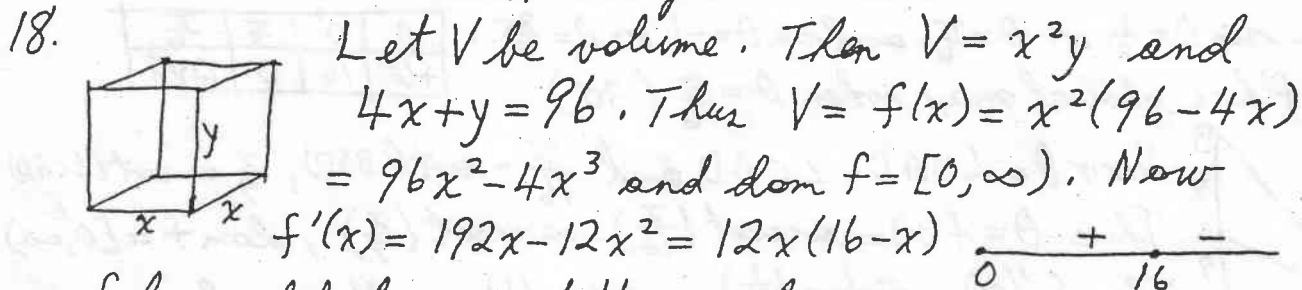 18.
Let V be volume. Then V = x²y and
4x + y = 96. Thus V = f(x) = x²(96 - 4x)
= 96x² - 4x³ and dom f = [0, ∞). Now
f'(x) = 192x - 12x² = 12x(16 - x)
+ -
0 16
y
x x